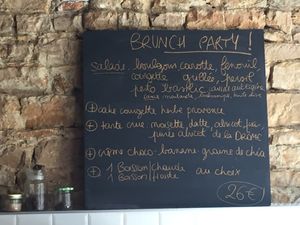 BRUNCH PARTY !
Salade: boulgour carotte, fenouil
courgette grillée, persil
pesto basilic,
+ cake courgette herbe provence
+ tarte crue noisette, datte, abricot,
abricot de la DRÔME
+ crème choco-banane-graine de chia
+ 1 Boisson/Chaude au choix
1 Boisson/Froide
26€